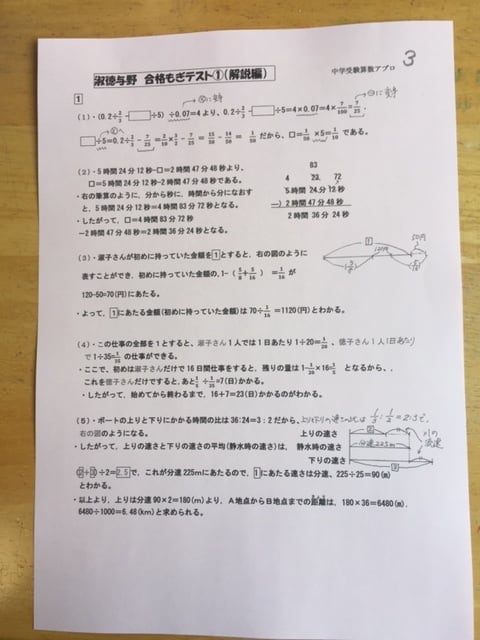 3
淑徳与野 合格もぎテスト①(解説編)
中学受験算数アプロ
1
(1)・(0.2÷2/3-□÷5)÷0.07=4より、0.2÷2/3-□÷5=4×0.07=4×7/100=7/25、
□÷5=0.2÷2/3-7/25=2/10×3/2-7/25=15/50-14/50=1/50だから、□=1/50×5=1/10である。
(2)・5時間24分12秒-□=2時間47分48秒より、
□=5時間24分12秒-2時間47分48秒である。
・右の筆算のように、分から秒に、時間から分になおす
と、5時間24分12秒=4時間83分72秒となる。
・したがって、□=4時間83分72秒
-2時間47分48秒=2時間36分24秒となる。
83
4 23 72
5時間 24分 12秒
-) 2時間 47分 48秒
2時間 36分 24秒
(3)・淑子さんが初めに持っていた金額を1とすると、右の図のように
表すことができ、初めに持っていた金額の、1-(5/8+5/16)=1/16が
120-50=70(円)にあたる。
・よって、1にあたる金額(初めに持っていた金額)は70÷1/16=1120(円)とわかる。
1
120円
50円
5/8
5/16
(4)・この仕事の全部を1とすると、淑子さん1人では1日あたり1÷20=1/20、徳子さん1人(1日あたり)
で1÷35=1/35の仕事ができる。
・ここで、初めは淑子さんだけで16日間仕事をすると、残りの量は1-1/20×16=1/5となるから、、
これを徳子さんだけですると、あと1/5÷1/35=7(日)かかる。
・したがって、始めてから終わるまで、16+7=23(日)かかるのがわかる。
(5)・ボートの上りと下りにかかる時間の比は36:24=3:2だから、上りと下りの速さの比は1/3:1/2=2:3で、
右の図のようになる。
・したがって、上りの速さと下りの速さの平均(静水時の速さ)は、
(2+3)÷2=2.5で、これが分速225mにあたるので、1にあたる速さは分速、225÷2.5=90(m)
とわかる。
上りの速さ
静水時の速さ
下りの速さ
2
分速225m
3
川の流速
・以上より、上りは分速90×2=180(m)より、A地点からB地点までの距離は、180×36=6480(m)、
6480÷1000=6.48(km)と求められる。